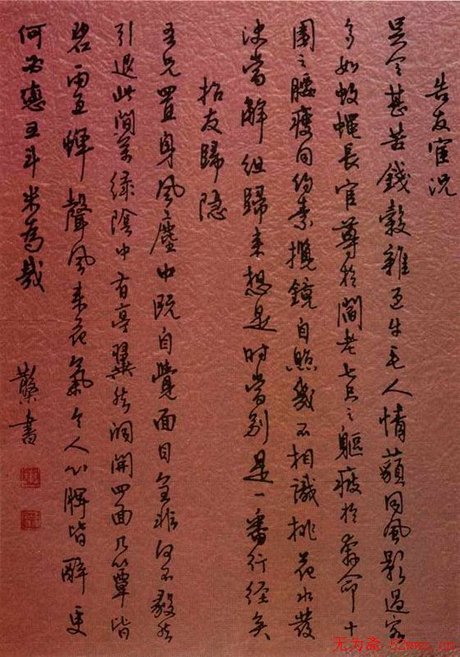 告友宦況
吳令甚苦錢穀雜牛毛人情同風影過客
多如蚊蠅長官尊於閻老七尺之軀疲於奔命十
圍之腰瘦同約素攬鏡自照幾不相識桃花水發
決當解組歸來想是時當別是一番行徑矣
招友歸隱
吾兄置身風塵中既自覺面目全非何不毅然
引退此間萬綠陰中有亭翼然洞開四面几簟皆
碧蟬聲風來花氣令人心脾皆醉更
何必戀五斗米為哉
書
无为斋